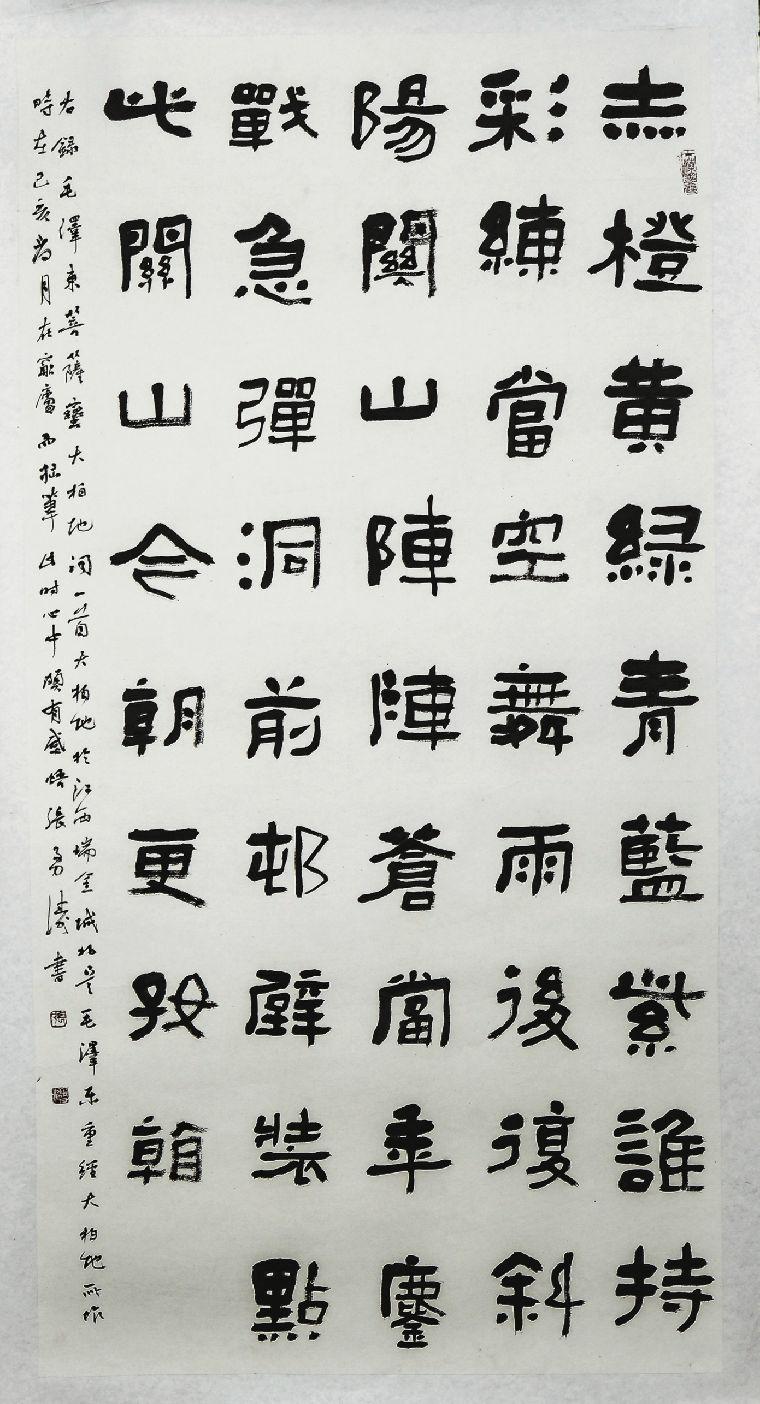 赤橙黄緑青藍紫誰持
彩練當空舞雨後復斜
陽關山陣陣蒼當年鏖
戰急彈洞前邨壁裝點
此關山今朝更好看
右錄毛澤東菩薩蠻大柏地詞一首大柏地於江西瑞金城北是毛澤东重經大柏地所作
時在己亥月在廬而此时心中頗有感悟張勇濤書